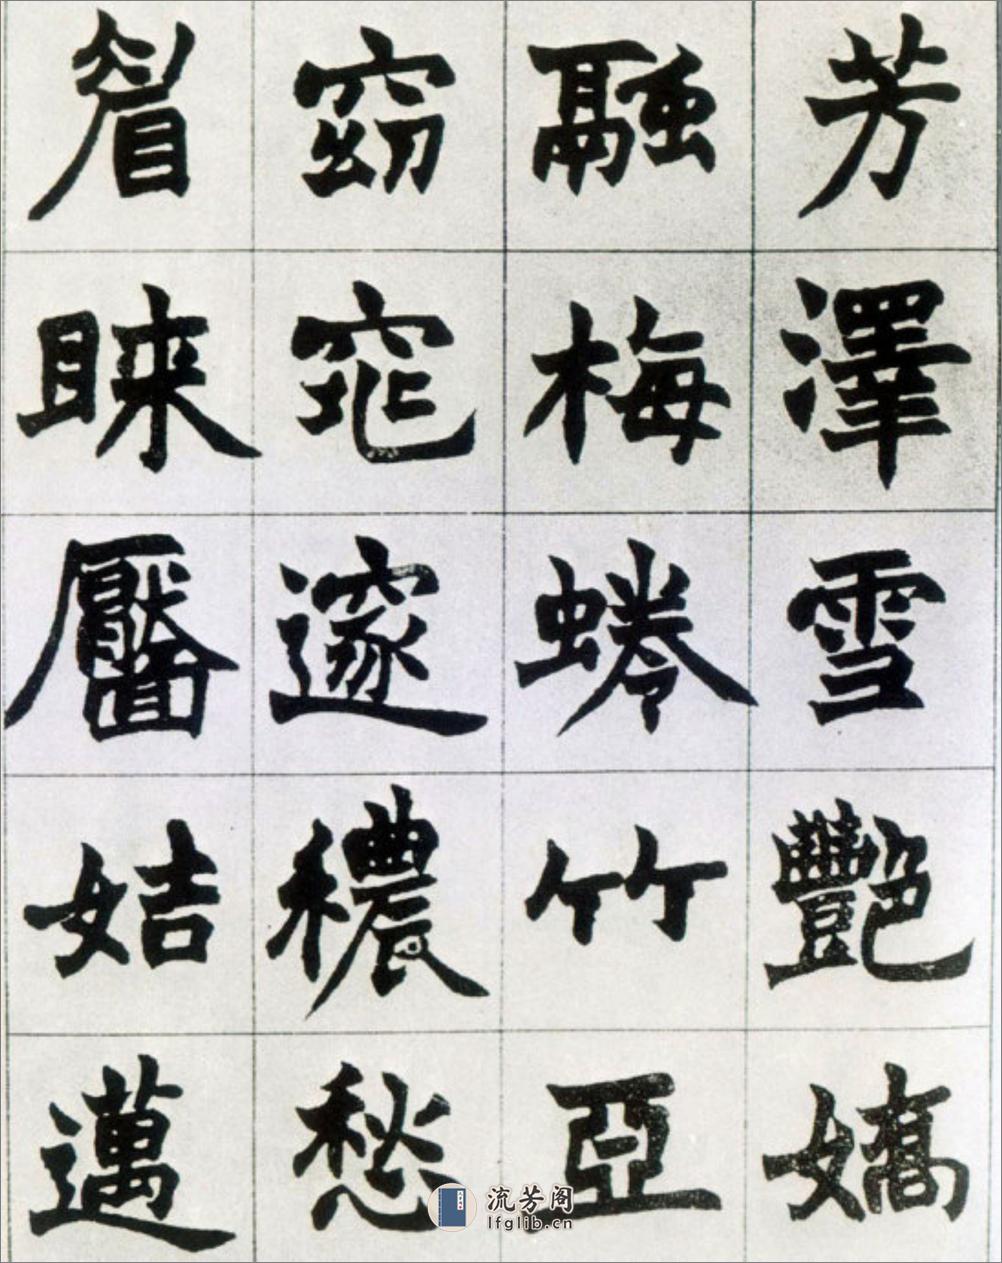 芳澤雪艷嬌
融梅蜷竹亞
窈窕邃穠愁
睞靨姞邁
流芳阁
lfglib.cn